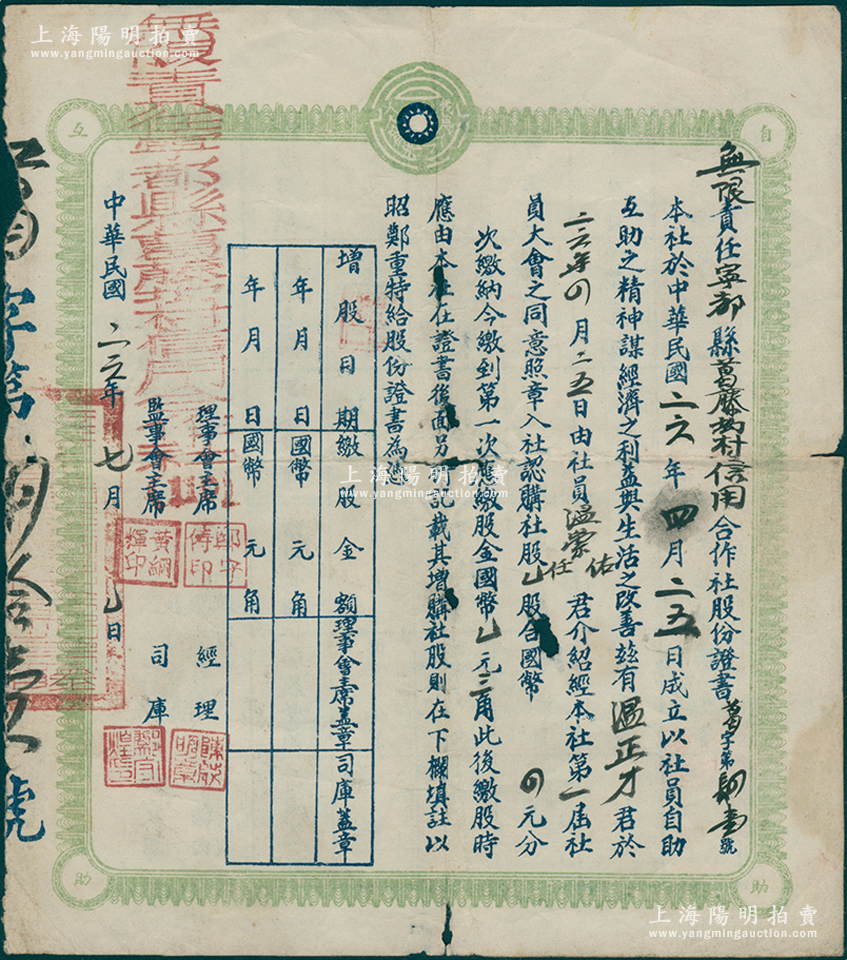 上海陽明拍賣
www.yangmingauction.com
上海陽明拍賣
www.yangmingauction.com
自
互
助
助
無限責任寧都縣葛藤坳村信用合作社股份證書葛字第號
本社於中華民國二六年四月二五日成立以社員自助
互助之精神謀經濟之利益與生活之改善玆有溫正才君於
二六年四月二五日由社員溫崇佑任君介紹經本社第一屆社
員大會之同意照章入社認購社股股合國幣四元分
次繳納今繳到第一次應繳股金國幣元二角此後繳股時
應由本社在證書後面另記載其增購社股則在下欄填註以
昭鄭重特給股份證書為憑
增股日期 繳股金額 理事會主席蓋章 司庫蓋章
年月日 國幣元角
年月日 國幣元角
理事會主席
經理
監事會主席
司庫
黃綱輝印
中華民國二六年七月日
字第
號
上海陽明拍賣
www.yangmingauction.com
上海陽明拍賣
www.yangmingauction.com